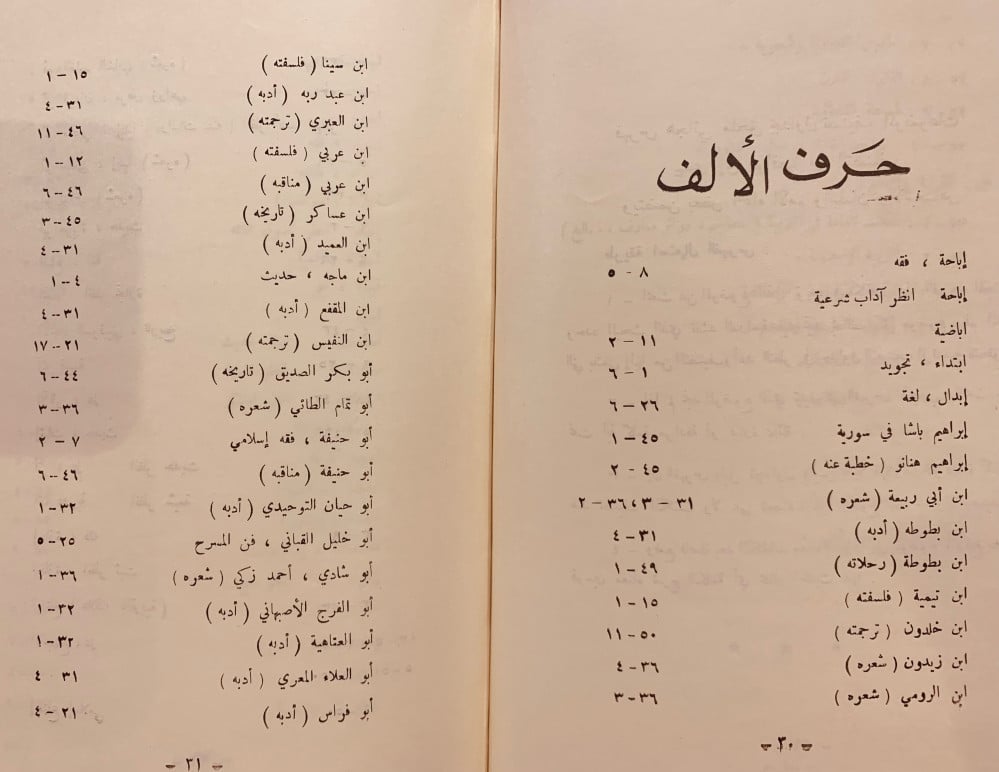 حرف الألف
إباحة ، فقه ٨ - ٥
إباحة انظر آداب شرعية
اباضية ١١ – ٢
ابتداء ، تجويد ١ – ٦
إبدال ، لغة ٢٦ – ٦
إبراهيم باشا في سورية ٤٥ – ١
إبراهيم هنانو ( خطبة عنه ) ٤٥ - ٢
ابن أبي ربيعة ( شعره ) ٣١ – ٣ ، ٣٦ – ٢
ابن بطوطه ( أدبه ) ٣١ – ٤
ابن بطوطة ( رحلاته ) ٤٩ – ١
ابن تيمية ( فلسفته ) ١٥ – ١
ابن خلدون ( ترجمته ) ٥٠ – ١١
ابن زيدون ( شعره ) ٣٦ – ٤
ابن الرومي ( شعره ) ٣٦ – ٣
– ٣٠ –
ابن سينا ( فلسفته ) ١٥ – ١
ابن عبد ربه ( أدبه ) ٣١ – ٤
ابن العبري ( ترجمته ) ٤٦ – ١١
ابن عربي ( فلسفته ) ١٢ – ١
ابن عربي ( مناقبه ) ٤٦ – ٦
ابن عساكر ( تاريخه ) ٤٥ – ٣
ابن العميد ( أدبه ) ٣١ – ٤
ابن ماجه ، حديث ٤ – ١
ابن المقفع ( أدبه ) ٣١ – ٤
ابن النفيس ( ترجمته ) ٢١ – ١٧
أبو بكر الصديق ( تاريخه ) ٤٤ – ٦
أبو تمام الطائي ( شعره ) ٣٦ – ٣
أبو حنيفة ، فقه إسلامي ٧ – ٢
أبو حنيفة ( مناقبه ) ٤٦ – ٦
أبو حيان التوحيدي ( أدبه ) ٣٢ – ١
أبو خليل القباني ، فن المسرح ٢٥ – ٥
أبو شادي ، أحمد زكي ( شعره ) ٣٦ – ١
أبو الفرج الأصبهاني ( أدبه ) ٣٢ – ١
أبو العتاهية ( أدبه ) ٣٢ – ١
أبو العلاء المعري ( أدبه ) ٣١ ٤
أبو فراس ( أدبه ) ٢١ – ٤
– ٣١ –